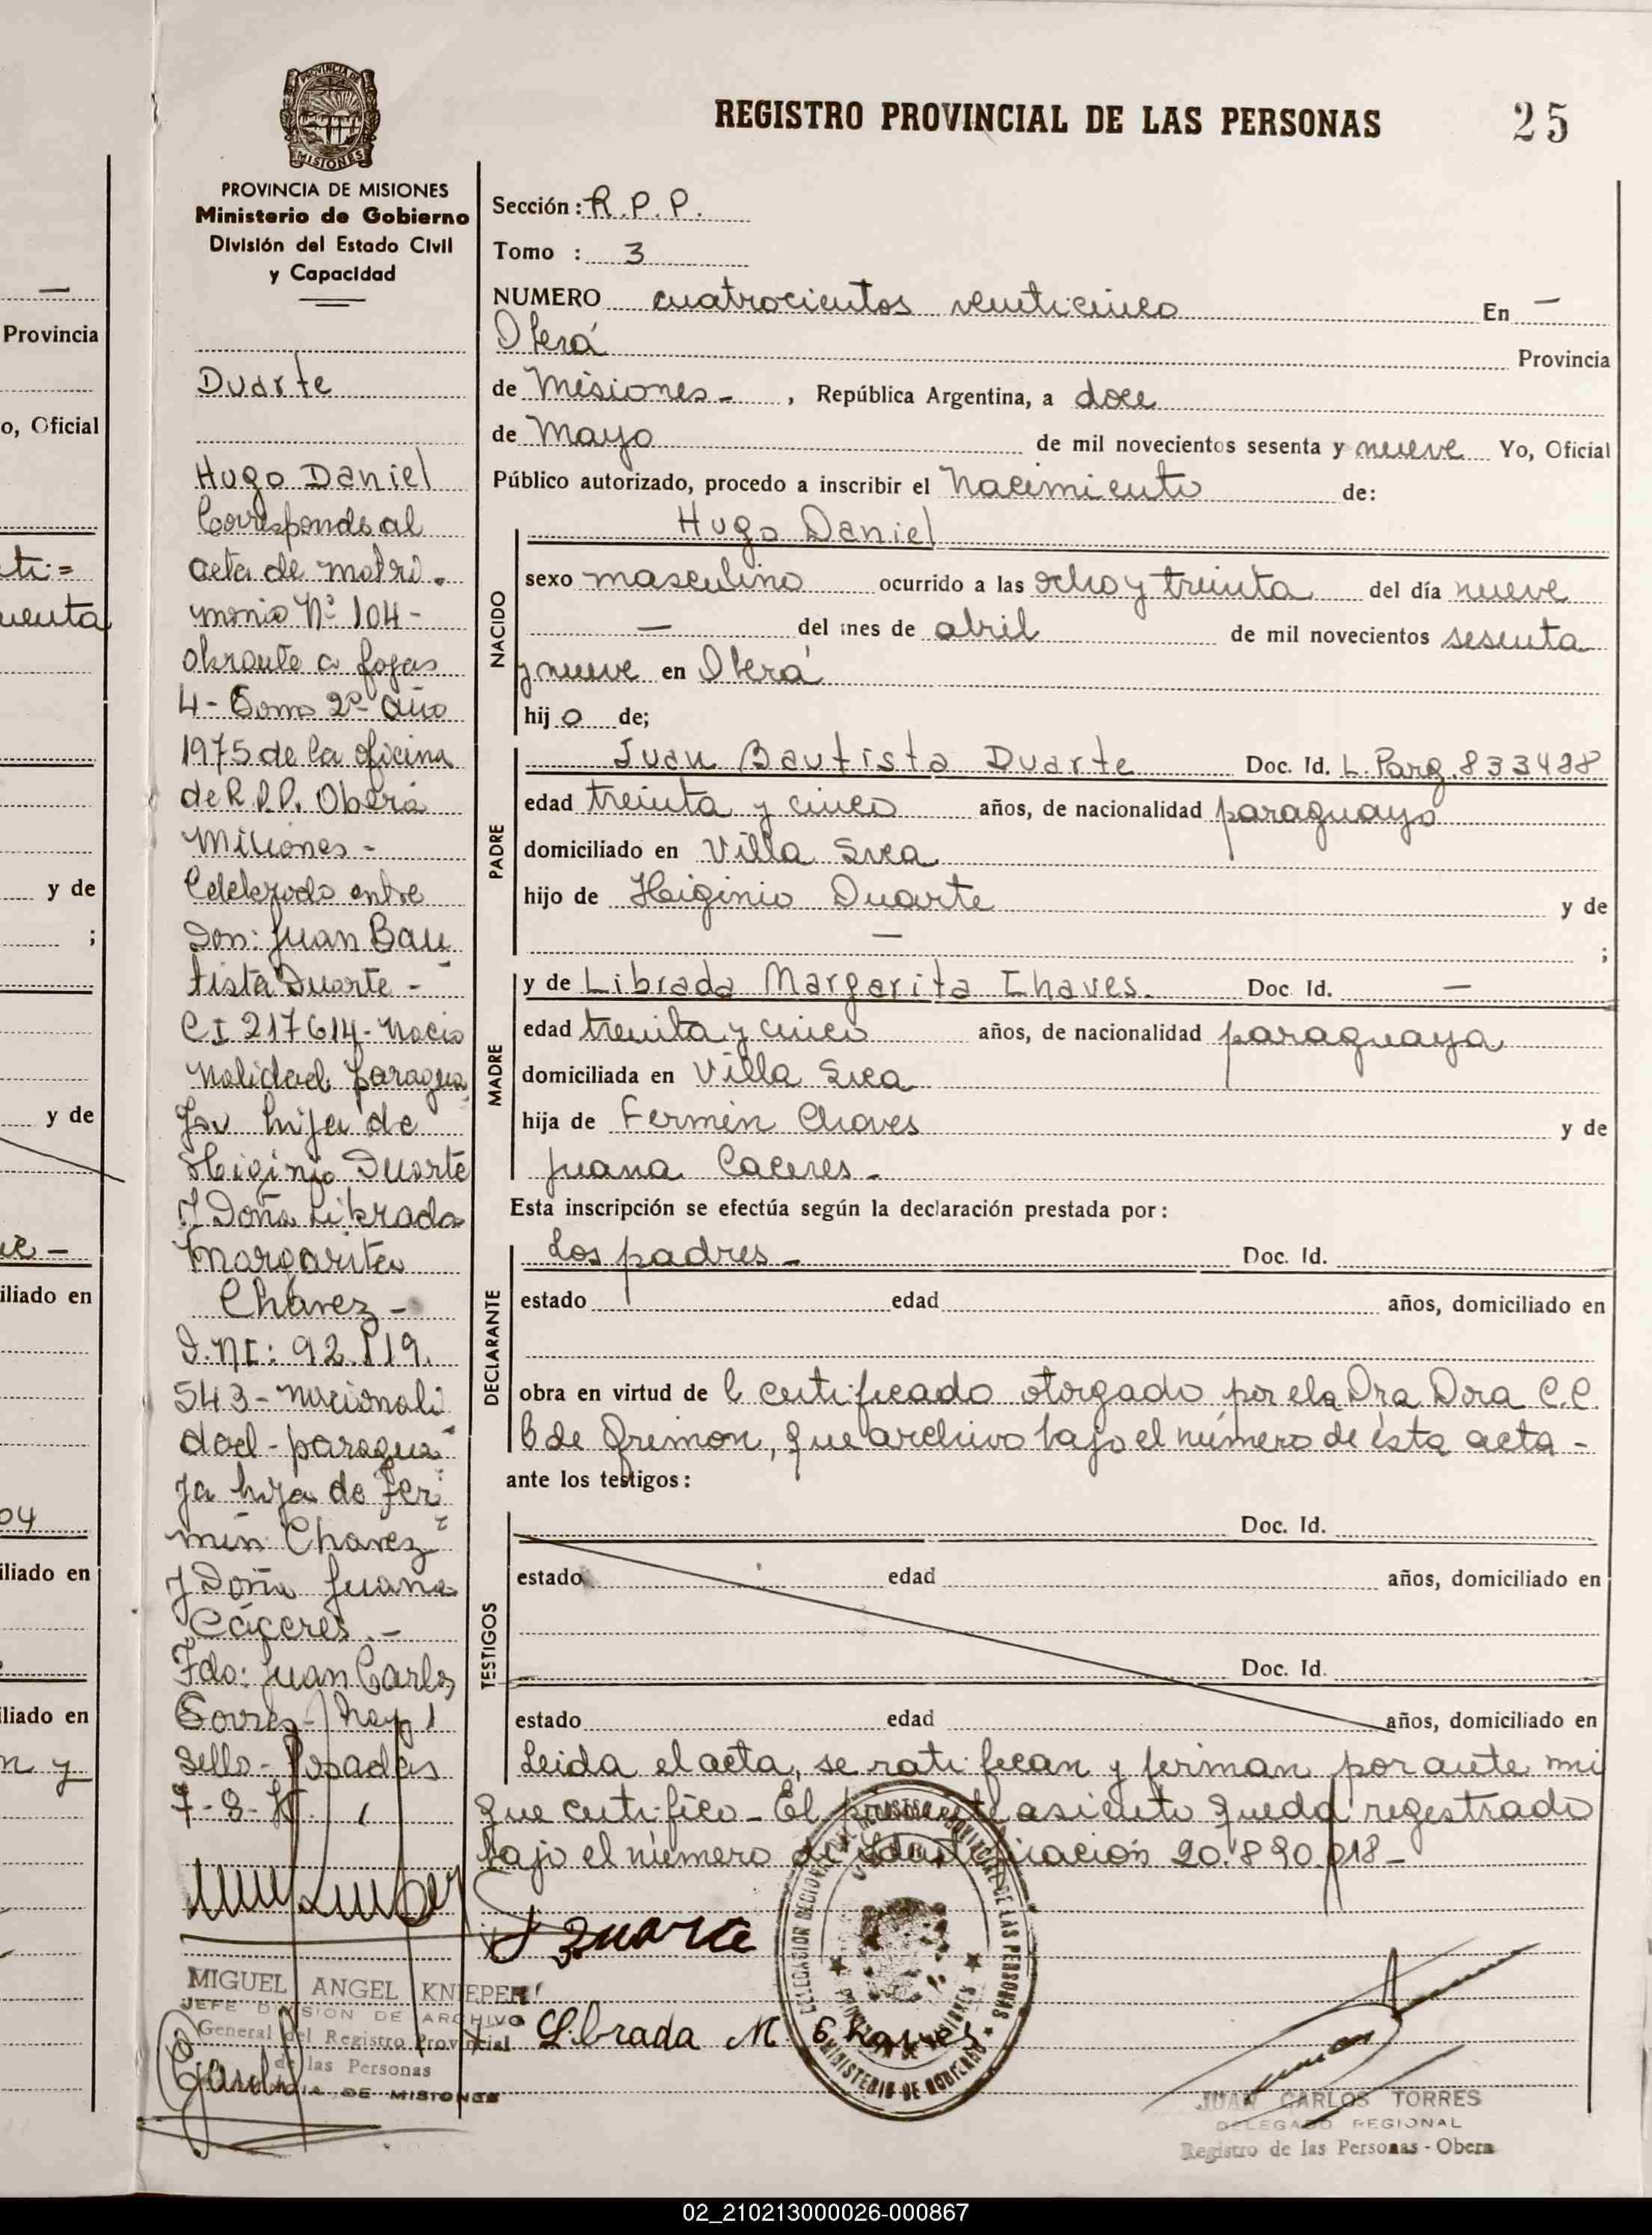 REGISTRO PROVINCIAL DE LAS PERSONAS
25
PROVINCIA DE MISIONES
PROVINCIA DE MISIONES
Ministerio de Gobierno
División del Estado Civil
y Capacidad
Duarte
Hugo Daniel
Corresponde al
acta de matri-
monio Nº 104-
obrante a fojas
4- Tomo 2º año
1975 de la oficina
de R.P.P. Oberá
Misiones -
Celebrado entre
Don: Juan Bau
tista Duarte -
CI 217614- Nacio
nalidad paragua
yav hijo de
Higinio Duarte
y Doña Librada
Margarita
Chávez -
D.NI: 92.119.
543- nacionali
dad- paragua
ya hija de Fer
mín Chavez
y Doña Juana
Cáceres.-
Fdo: Juan Carlos
Torres- hay 1
sello- Posadas
MIGUEL ANGEL KNIEPER
JEFE DIVISION DE ARCHIVO
General del Registro Provincial
de las Personas
PROVINCIA DE MISIONES
Sección: R.P.P.
Tomo : 3
NUMERO cuatrocientos veinticinco En —
Oberá Provincia
de Misiones - , República Argentina, a doce
de Mayo de mil novecientos sesenta y nueve Yo, Oficial
Público autorizado, procedo a inscribir el Nacimiento de:
NACIDO
Hugo Daniel
sexo masculino ocurrido a las ocho y treinta del día nueve
— del mes de abril de mil novecientos sesenta
y nueve en Oberá
hij o de;
PADRE
Juan Bautista Duarte Doc. Id. L. Parg. 833428
edad treinta y cinco años, de nacionalidad paraguayo
domiciliado en Villa Svea
hijo de Higinio Duarte y de
— ;
MADRE
y de Librada Margarita Chaves. Doc. Id. —
edad treinta y cinco años, de nacionalidad paraguaya
domiciliada en Villa Svea
hija de Fermín Chaves y de
Juana Caceres -
Esta inscripción se efectúa según la declaración prestada por:
DECLARANTE
Los padres - Doc. Id.
estado edad años, domiciliado en
obra en virtud de l certificado otorgado por ela Dra Dora C.C.
de , que archivo bajo el número de ésta acta -
ante los testigos:
TESTIGOS
Doc. Id.
estado edad años, domiciliado en
Doc. Id.
estado edad años, domiciliado en
Leida el acta, se ratifican y firman por ante mi
que certifico - El presente asiento queda registrado
bajo el número de identificación 20.890.018 -
J Duarte
Librada M. Chaves
JUAN CARLOS TORRES
DELEGADO REGIONAL
Registro de las Personas - Obera
Provincia
o, Oficial
y de
;
y de
iliado en
04
iliado en
iliado en
n y
02_210213000026-000867